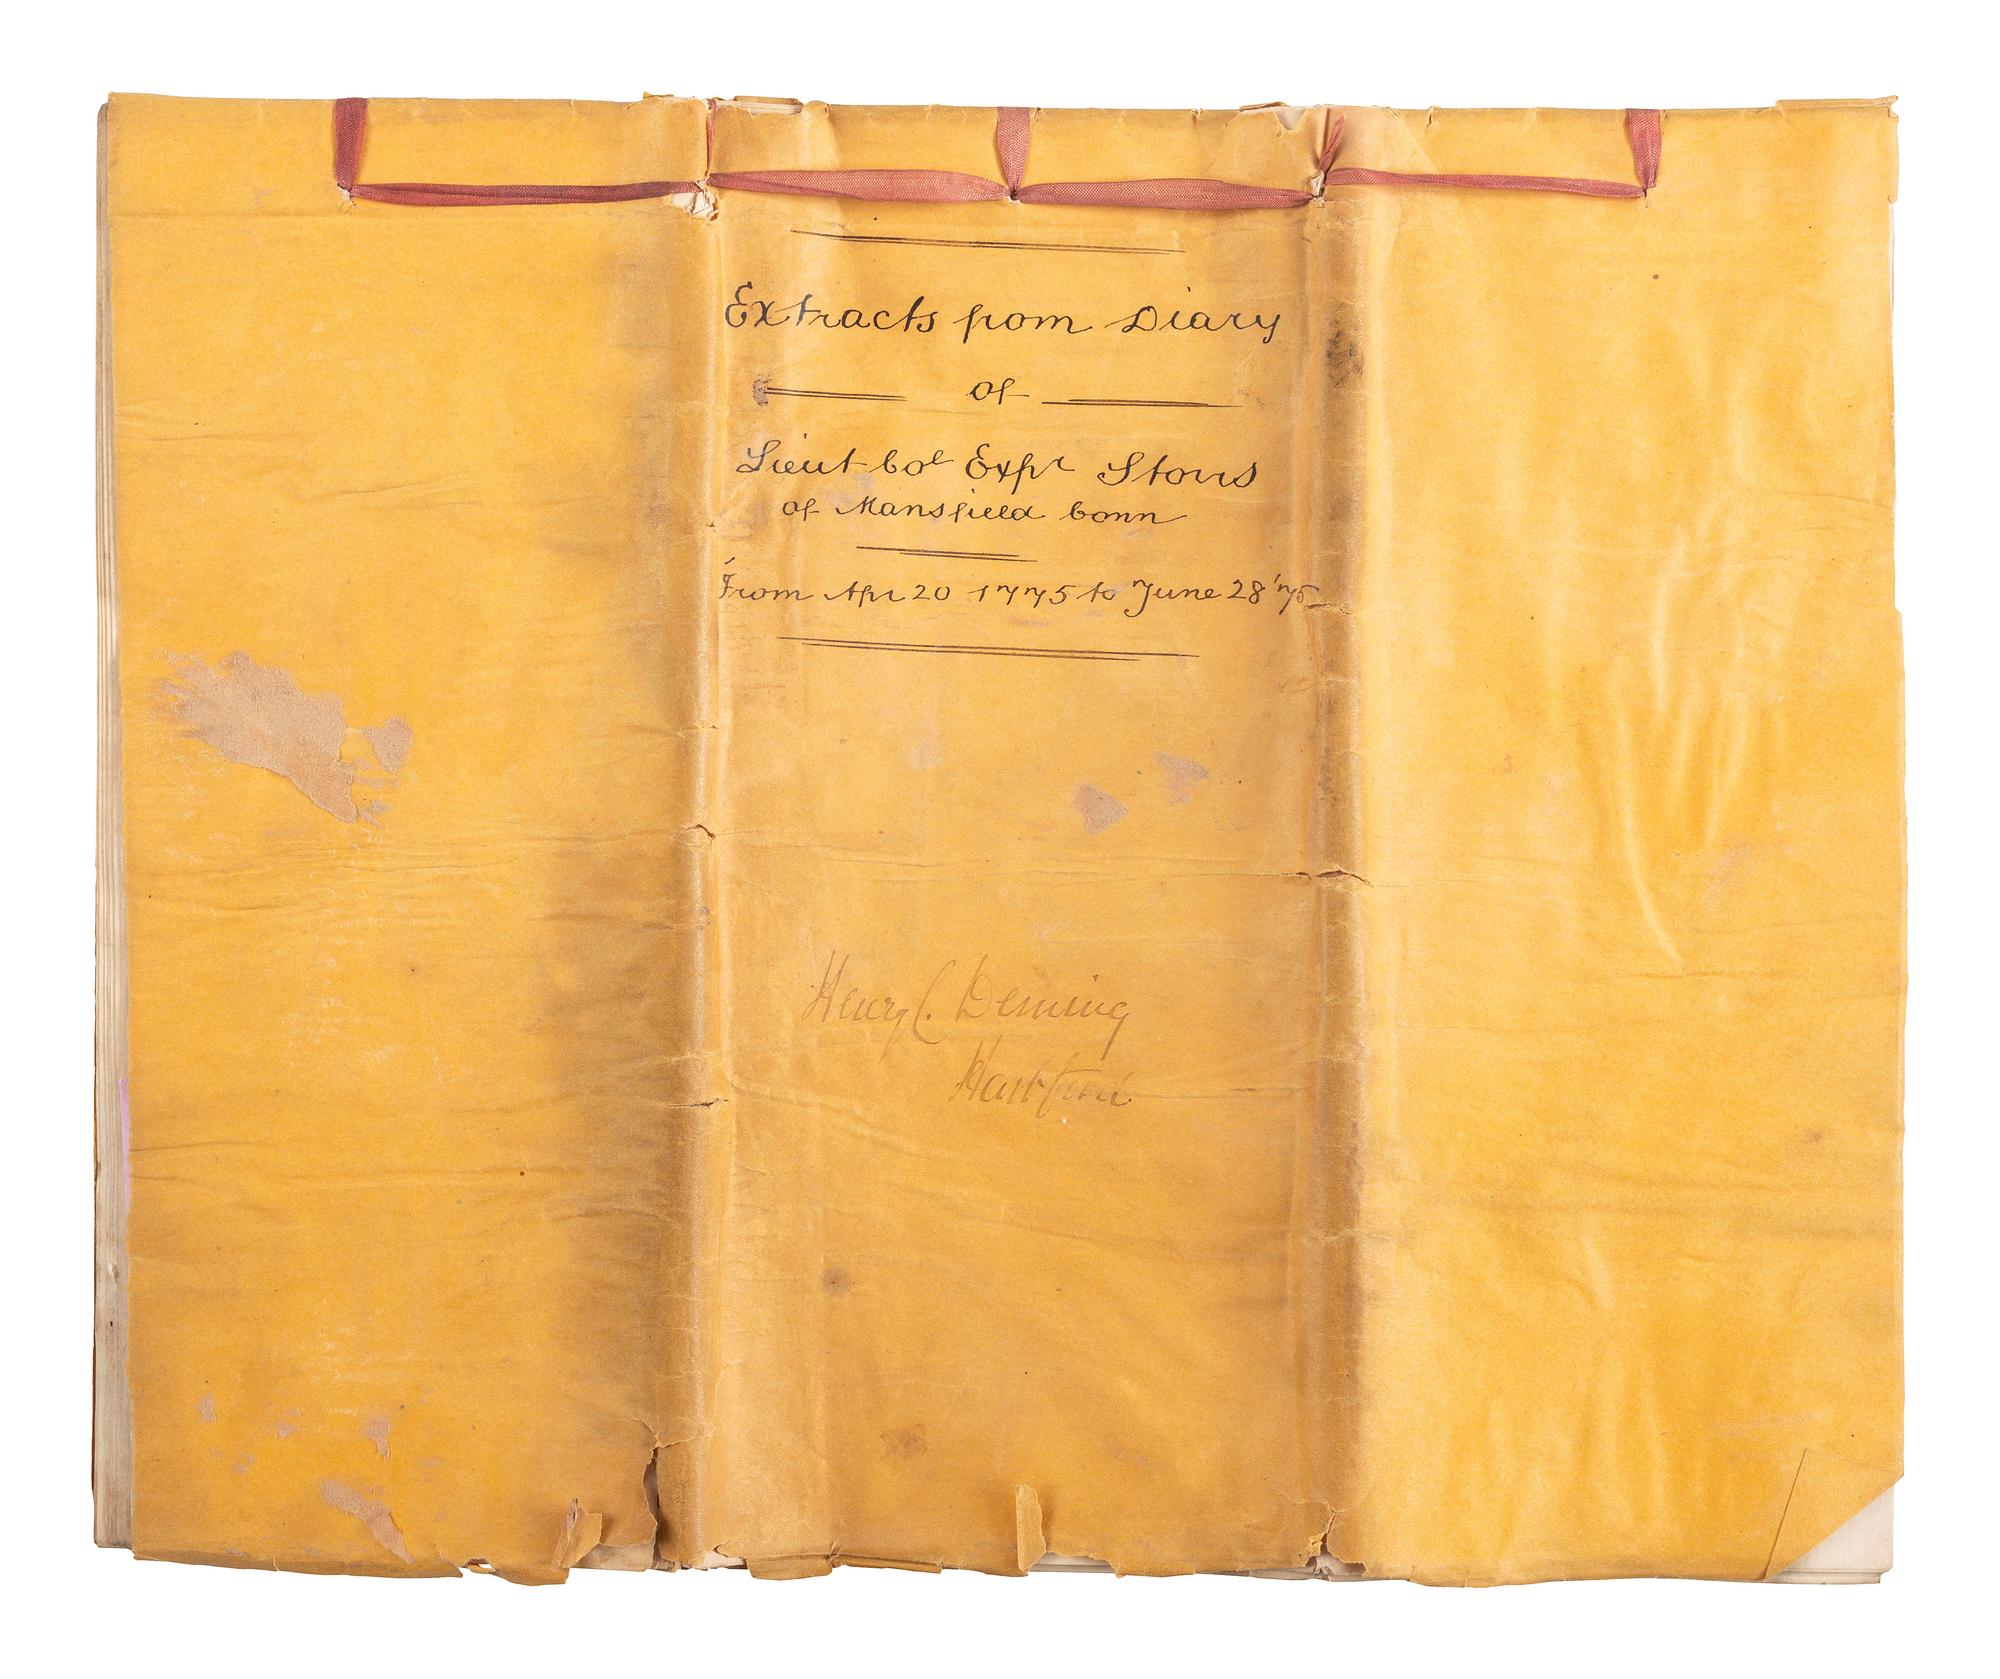 Extracts from Diary
of
Lieut Col Expr Storrs
of Mansfield Conn
From Apr 20 1775 to June 28 '75
Henry C. Deming
Hartford